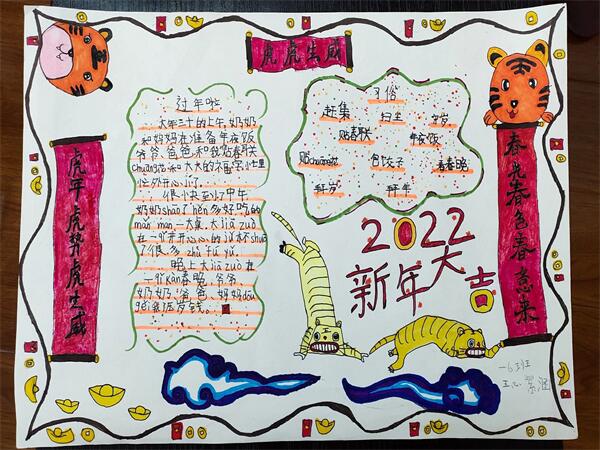 虎虎生威
虎年虎势虎生威
春光春色春意来
过年啦
大年三十的上午,奶奶
和妈妈在准备年夜饭
爷爷、爸爸和我贴春联
chuāng花和大大的福字,心里
很快到了中午
奶奶shāo了hěn多好吃的
mǎn mǎn一大桌,大jiā zuò
了很多zhù fú yǔ.
晚上大jiā zuò在
一qǐ kàn春晚,爷爷
奶奶、爸爸、妈妈dōu
gěi我压岁钱。
习俗
赶集
扫尘
贴春联
年夜饭
贴chuāng花
包饺子
看春晚
拜年
2022
新年大吉
一6班